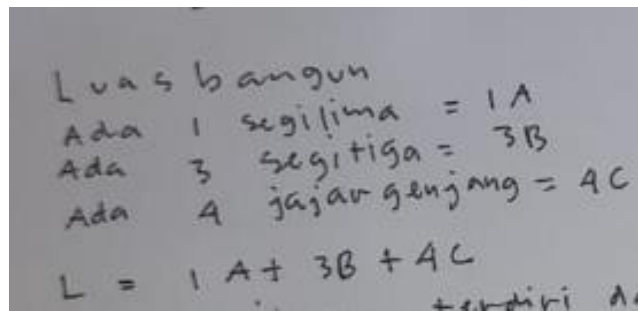 Luas bangun
Ada 1 segilima = 1A
Ada 3 segitiga = 3B
Ada 4 jajar genjang = 4C
L = 1A + 3B + 4C
terdiri